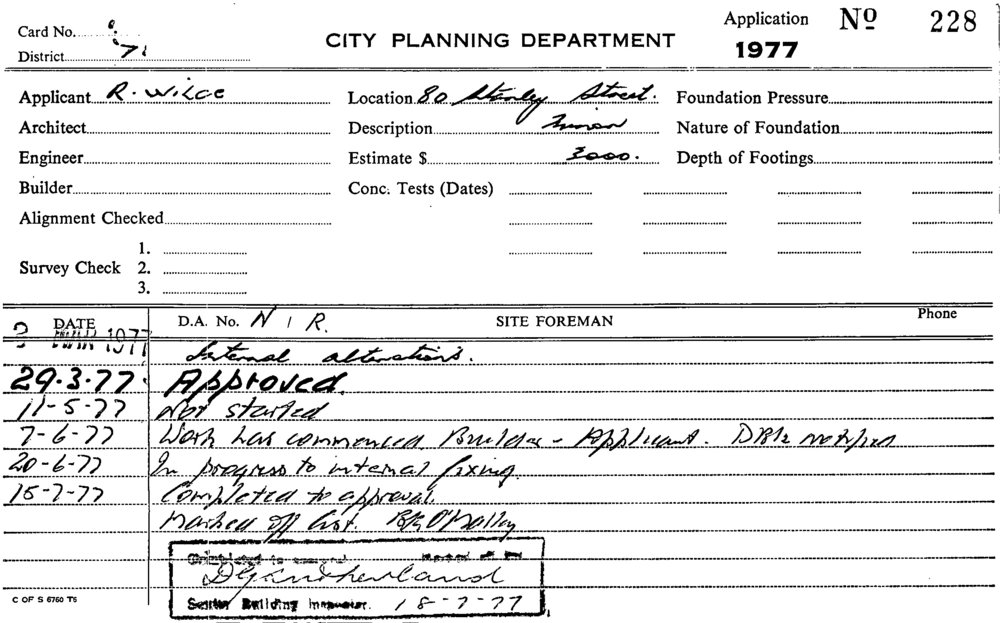 Card No.
District 71
CITY PLANNING DEPARTMENT
Application Nº 228
1977
Applicant R. Wilce
Location 80 Stanley Street.
Foundation Pressure
Architect
Description Minor
Nature of Foundation
Engineer
Estimate $ 3000.
Depth of Footings
Builder
Conc. Tests (Dates)
Alignment Checked
Survey Check 1.
2.
3.
DATE
D.A. No. N / R.
SITE FOREMAN
Phone
MAR 1977 Internal alterations.
29.3.77. Approved.
11-5-77 Not started
7-6-77 Work has commenced. Builder - Applicant. notified
20-6-77 In progress to internal fixing.
15-7-77 Completed to approval.
Marked off list. O'Malley
Completed to approval Marked off
D G Sutherland
Senior Building Inspector. 18-7-77
C OF S 6760 T5